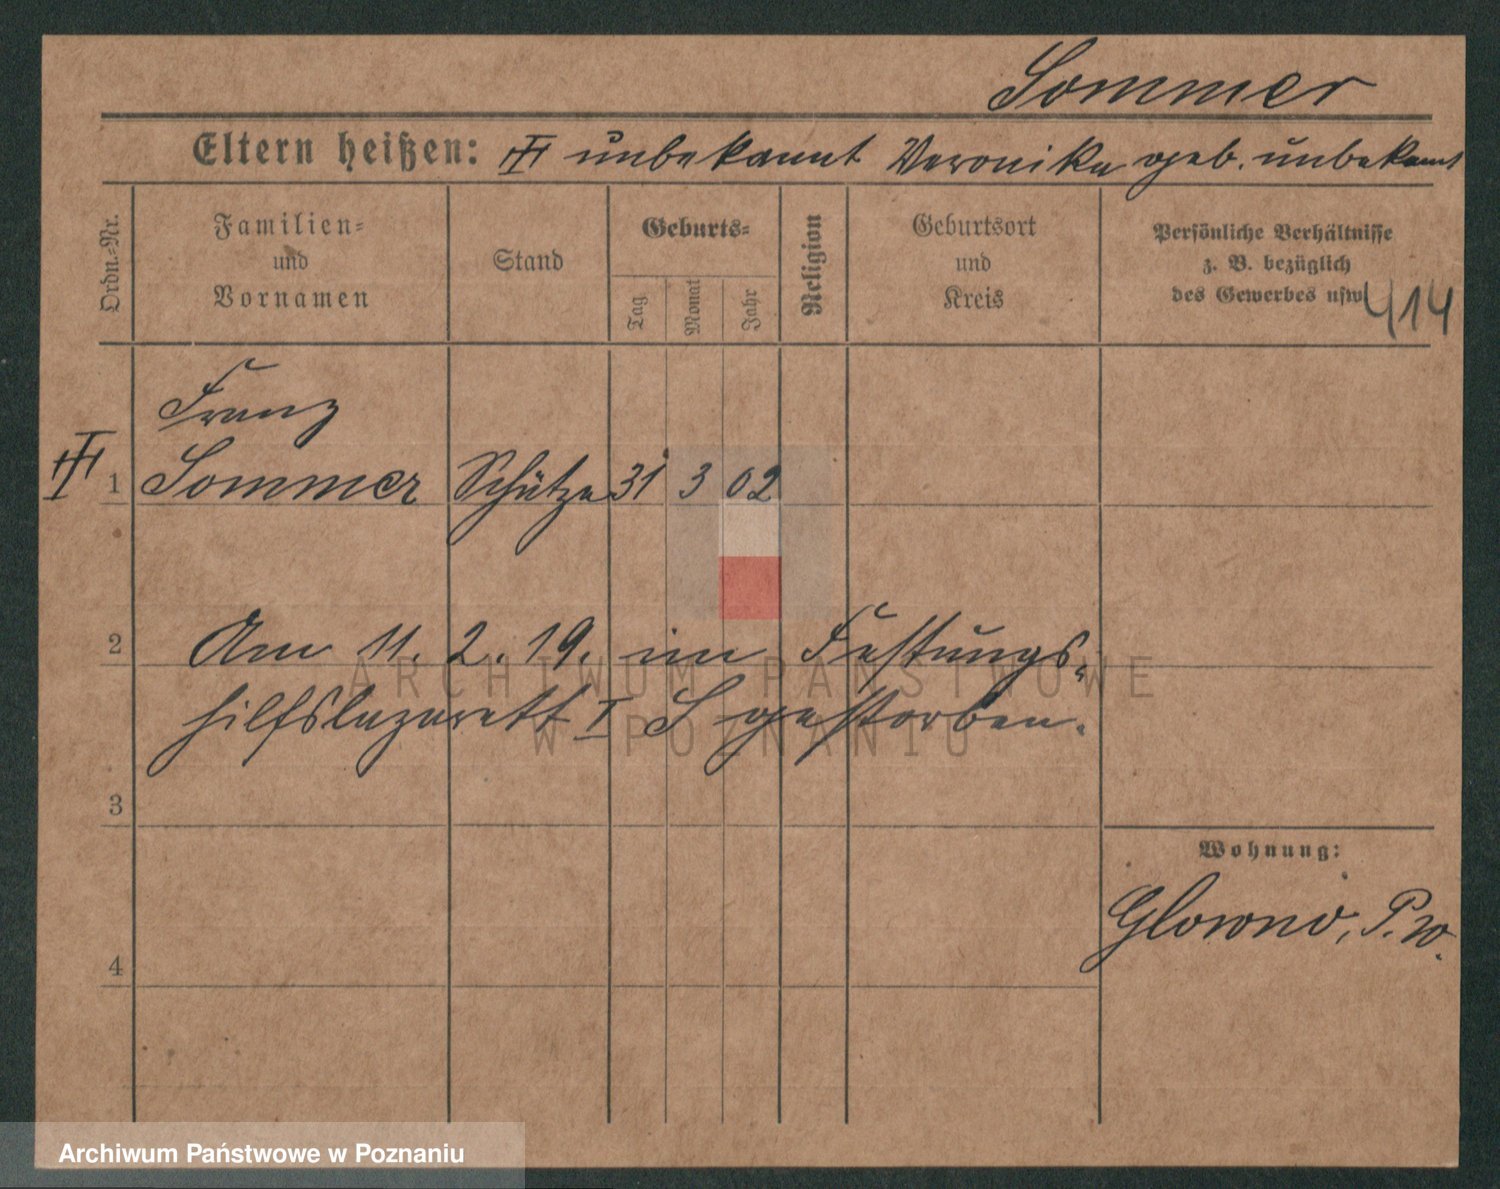 Sommer
Eltern heißen: unbekannt Veronika geb. unbekannt
Ordn.-Nr.
Familien-
und
Vornamen
Stand
Geburts-
Tag
Monat
Jahr
Religion
Geburtsort
und
Kreis
Persönliche Verhältnisse
z. B. bezüglich
des Gewerbes usw.
414
Franz
1 Sommer Schütze 31 3 02
2 Am 11. 2. 19. im Festungs-
hilfslazarett I S gestorben.
ARCHIWUM PAŃSTWOWE
W POZNANIU
3
Wohnung:
Glowno, P. W.
4
Archiwum Państwowe w Poznaniu